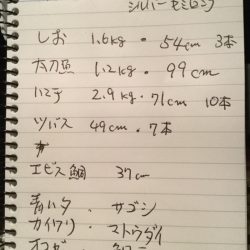 シルバー
しお 1.6kg・54cm 3本
太刀魚 1.2kg・99cm
ハマチ 2.9kg・71cm 10本
ツバス 49cm・7本
エビス鯛 37cm
青ハタ・サゴシ
カイワリ・マトウダイ
オコゼ